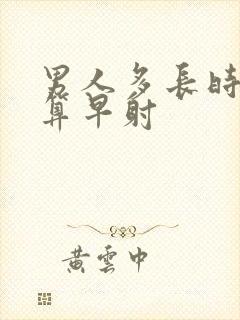 男人多長時
算早射
黃雲中